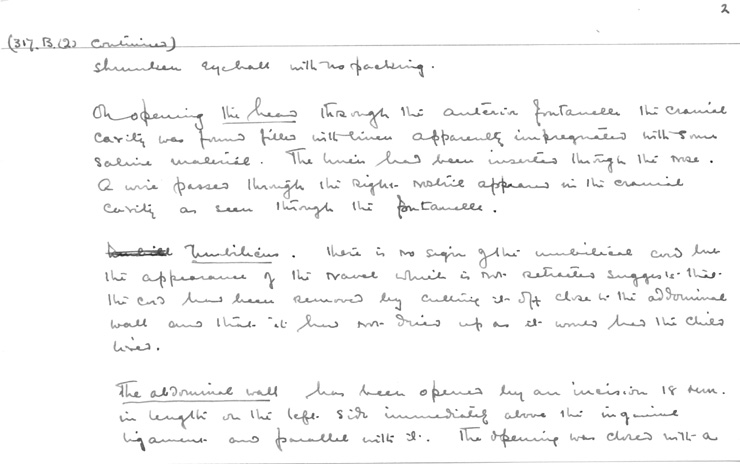 2
(317. B. (2) continued)
shrunken eyeball with no packing.
On opening the head through the anterior fontanelle the cranial
cavity was found filled with linen apparently impregnated with some
saline material. The linen had been inserted through the nose.
A wire passed through the right nostril appeared in the cranial
cavity as seen through the fontanelle.
Umbilicus. There is no sign of the umbilical cord but
the appearance of the navel which is not retracted suggests that
the cord had been removed by cutting it off close to the abdominal
wall and that it had not dried up as it would had the child
lived.
The abdominal wall has been opened by an incision 18 mm.
in length on the left side immediately above the inguinal
ligament and parallel with it. The opening was closed with a